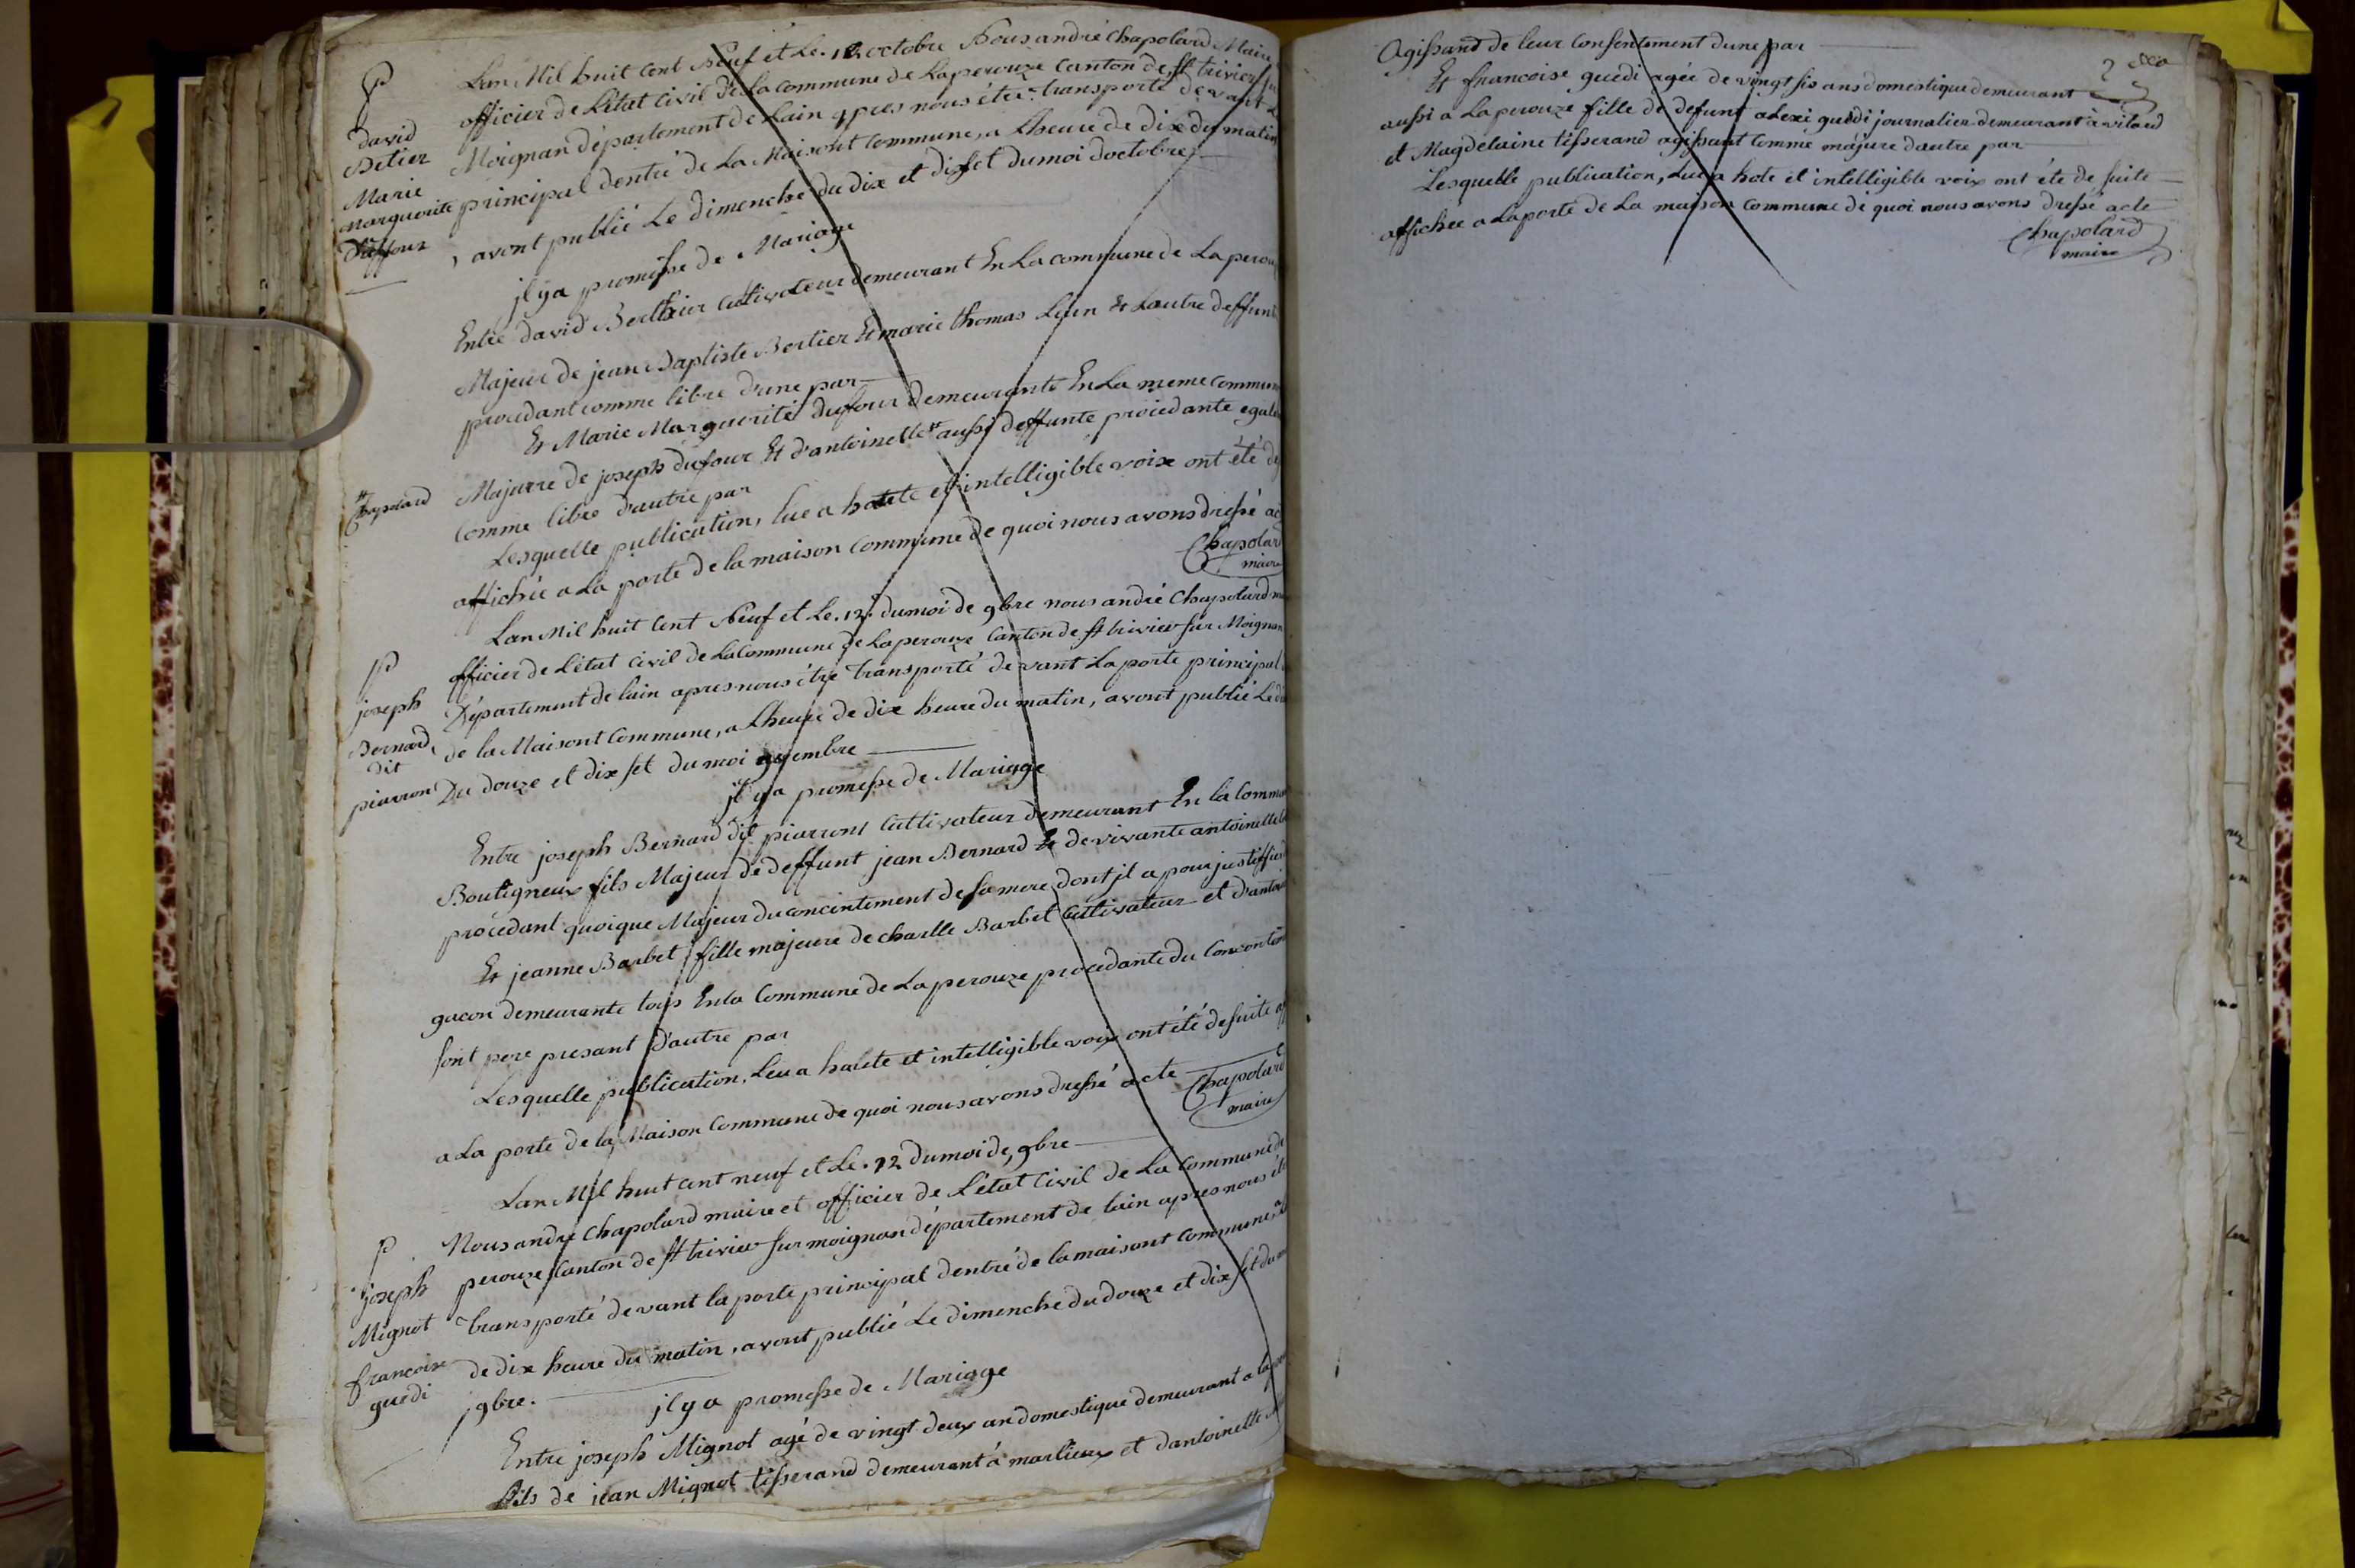 P
david
Betier
Marie
marguerite
Duffour
Lan Mil huit Cent Neuf et Le. 12 octobre Nous andré Chapolard Maire
officier de L'état Civil de La commune de Laperouze Canton de st trivier
Moignan Département de Lain apres nous étre transporté devant
principal dentré de La Maisont Commune, a Lheure de dix du matin
, avont publié Le dimenche du dix et diset du moi doctobre
jl ya promesse de Mariage
Entre david Berthier Cultivateur demeurant En La commune de Laperou
Majeur de jean Baptiste Bertier Et marie thomas Leun et Lautre deffunt
procedant comme libre d'une par
Et Marie Marguerite dufour demeurante En La meme Commun
Majurre de joseph dufour Et d'antoinette aussi deffunte procedante egale
Chapolard
Comme libre d'autre par
Lesquelle publication, lue a haute et intelligible voix ont été de
affichée a La porte de la maison Commune de quoi nous avons dressé
Chapolar
maire
Lan Mil huit Cent Neuf et Le. 12. du moi de 9bre nous andré Chapolard
P
joseph
Bernard
dit
piarron
officier de L'état Civil de La Commune de Laperouze Canton de st trivier sur Moignan
Département de lain apres nous étre transporté devant La porte principal
de la Maisont Commune, a Lheure de dix heure du matin, avont publié Le
Du douze et dix set du moi
jl ya promesse de Mariage
Entre joseph Bernard dit piarront Cultivateur demeurant En la Comm
Bouligneux fils Majeur de deffunt jean Bernard Et de vivante antoinette
procedant quoique Majeur du concintement de sa mere dont jl a pour justiffier
Et jeanne Barbet fille majeure de charlle Barbet Cultivateur et d'antoi
gacon demeurante tous En la Commune de Laperouze procedante du Concontem
sont pere presant d'autre par
Lesquelle publication, Leu a haute et intelligible voix ont été de suite
a La porte de la Maison Commune de quoi nous avons dressé acte
Chapolard
maire
Lan Mil huit Cent neuf et Le. 12 du moi de 9bre
P
joseph
Mignot
francoise
guedi
Nous andre Chapolard maire et officier de L'état Civil de La Commune de
perouze Canton de st trivier sur moignan département de lain apres nous
transporté devant la porte principal dentré de la maisont Commune
de dix heure du matin, avont publié Le dimenche du douze et dix set du
9bre.
jl ya promesse de Mariage
Entre joseph Mignot agé de vingt deux an domestique demeurant a
fils de jean Mignot tisserand demeurant à marlieux et dantoinette
Agissand de leur Consentement d'une par
Et francoise guedi agée de vingt sis ans domestique demeurant
aussi a Laperouze fille de defunt alexi guedi journalier demeurant à vilard
et Magdelaine tisserand agissant Comme majure dautre par
Lesquelle publication, Lue a hote et intelligible voix ont été de suite
affichée a La porte de La maison Commune de quoi nous avons dressé acte
Chapolard
maire